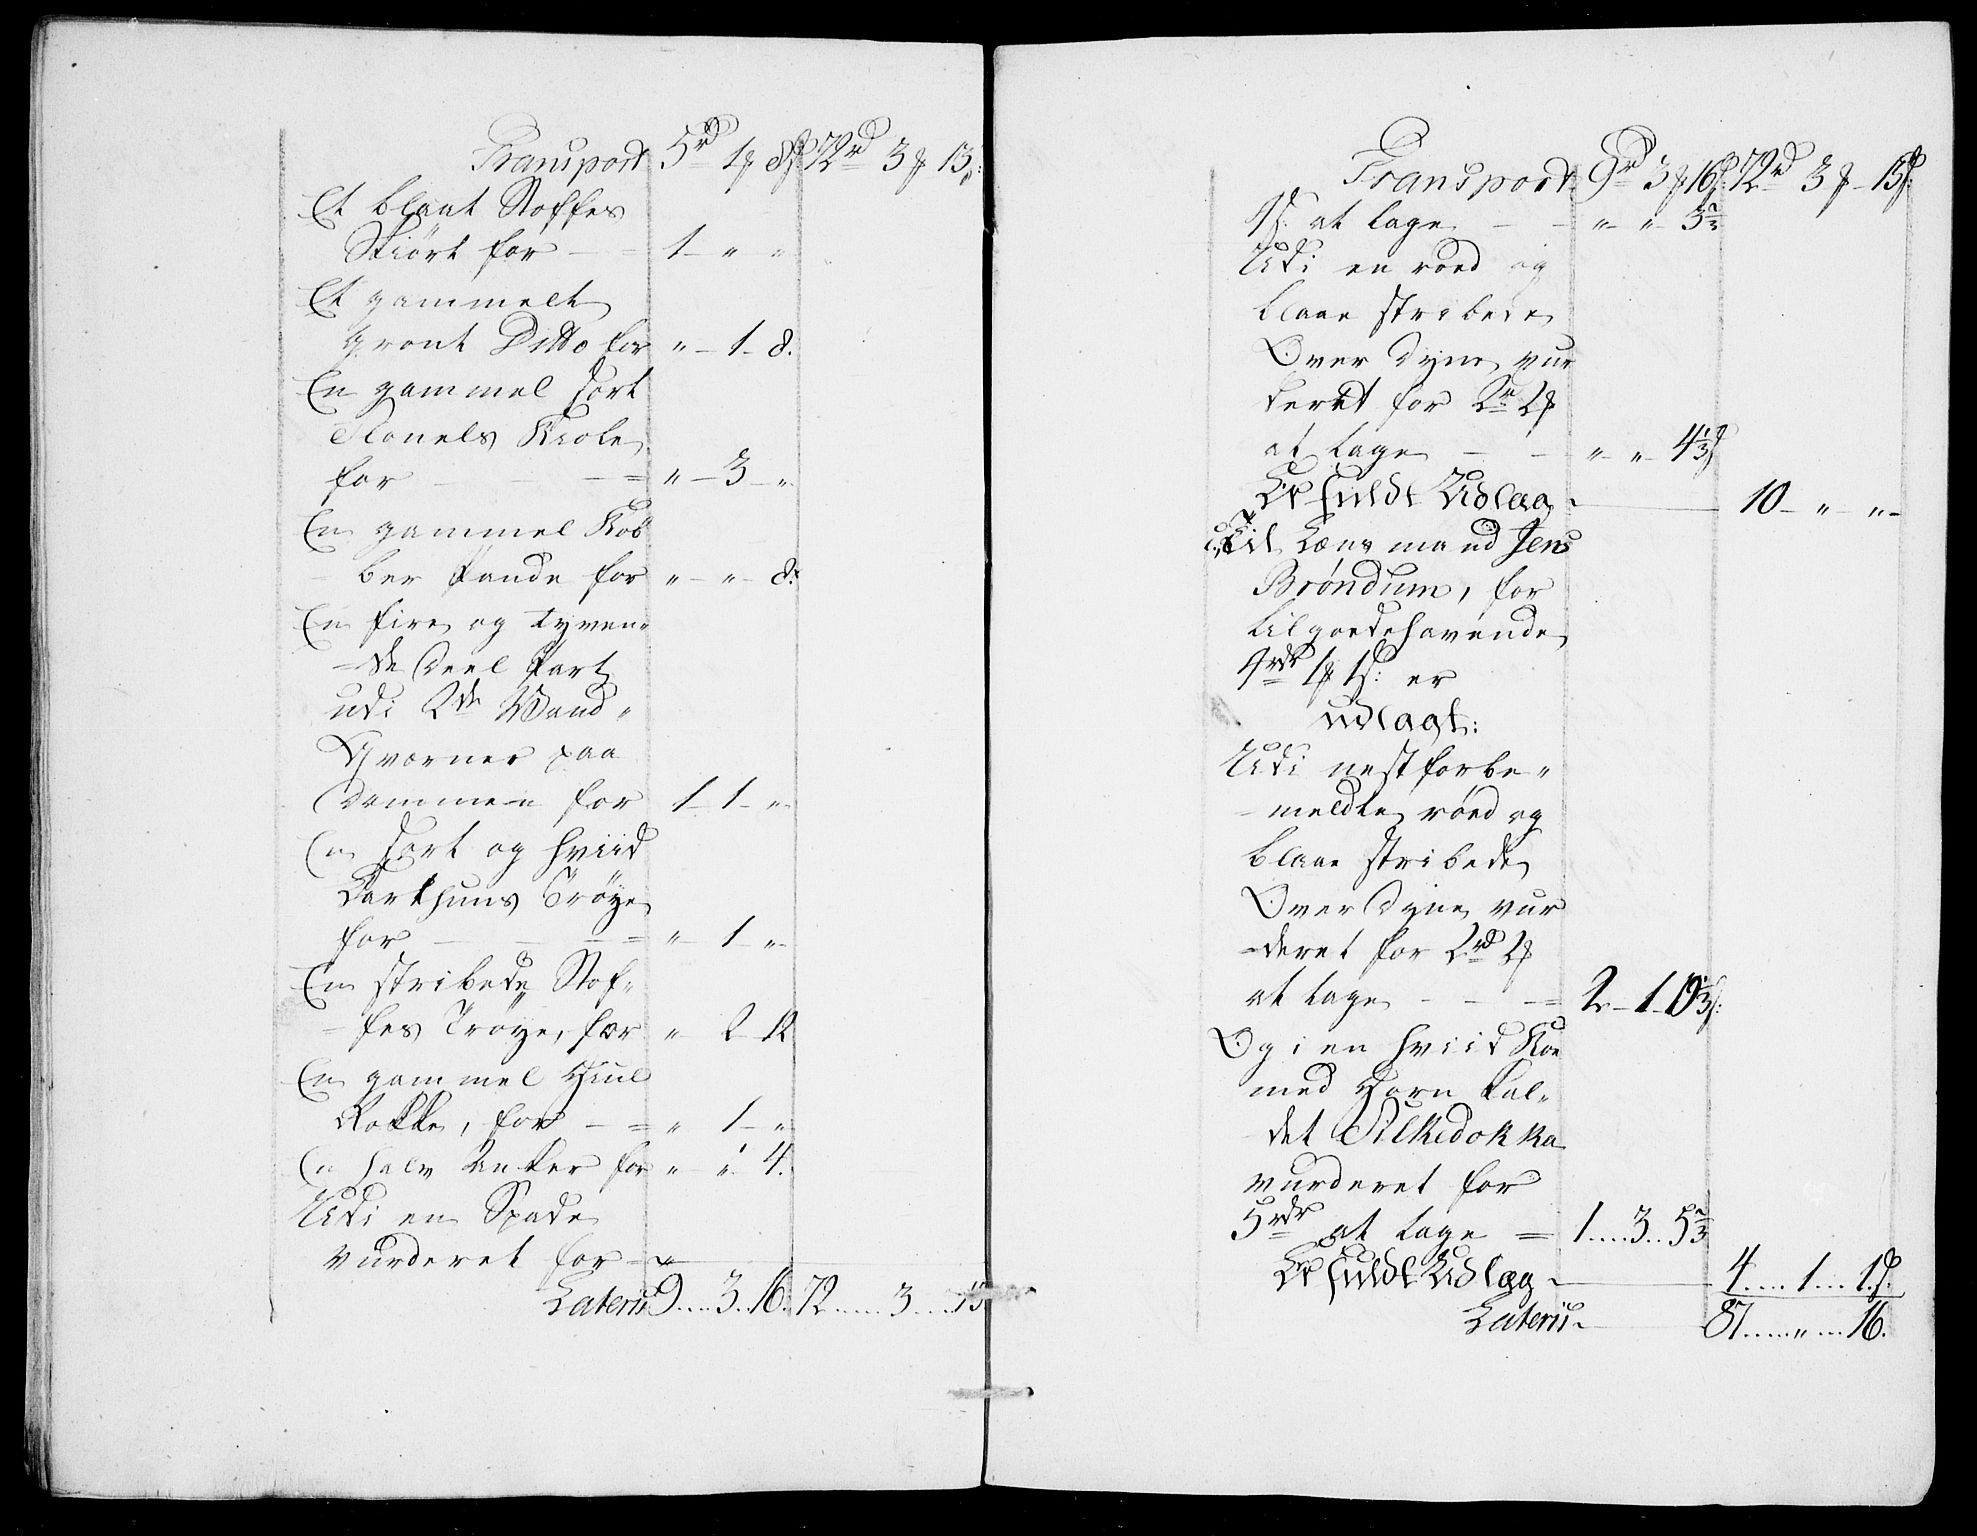 Transport 5rd 1 8s 72rd 3 13s:
Et blaat Stoffes
Skiört for 1 " "
Et gammelt
grönt Ditto for " 1 8.
En gammel sort
Flonels Kiole
for " 3 "
En gammel Kob
ber Pande for " " 8.
En fire og tyven
de Deel Part
udi 2de Vand
Qvorner paa
Dammen for 1 1 "
En sort og hviid
Parkhuns Tröye
for " 1 "
En stribede Stof
fes Tröye, for " 2 12
En gammel Hiul
Rokke, for " 1 "
En halv Anker for " " 4.
Udi en Spade
vurderet for
Lateris 9 3 16. 72 3 13
Transport 9rd 3 16s: 72rd 3 13s:
at tage " " 3
Udi en roed og
blaae stribede
Over Dyne vur
deret for 2rd 2
at tage " " 4 1/3s
Er fuldt Udlæg 10 " "
Til Lænsmand Jens
Bröndum, for
tilgoedehavende
4rdr 1 1s: er
udlagt:
Udi nestforbe
meldte röed og
blaae stribede
Over Dyne vur
deret for 2rd 2
at tage 2 1 19 1/3s:
Og i en hviid Koe
med Horn kal
det Silkedokka
vurderet for
5rdr at tage 1 3 5 2/3
Er fuldt Udlæg 4 1 1s.
Lateris 87 " 16.